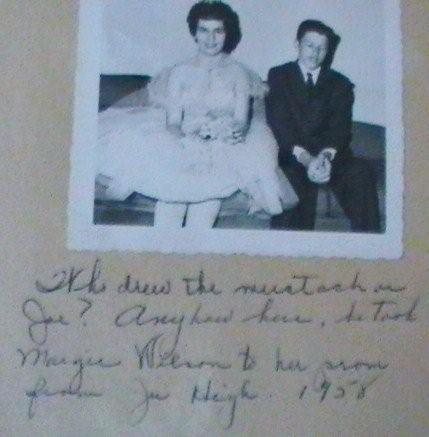 Who drew the mustach on
Joe? Anyhow here, he took
Margie Wilson to her prom
from Ju High. 1958